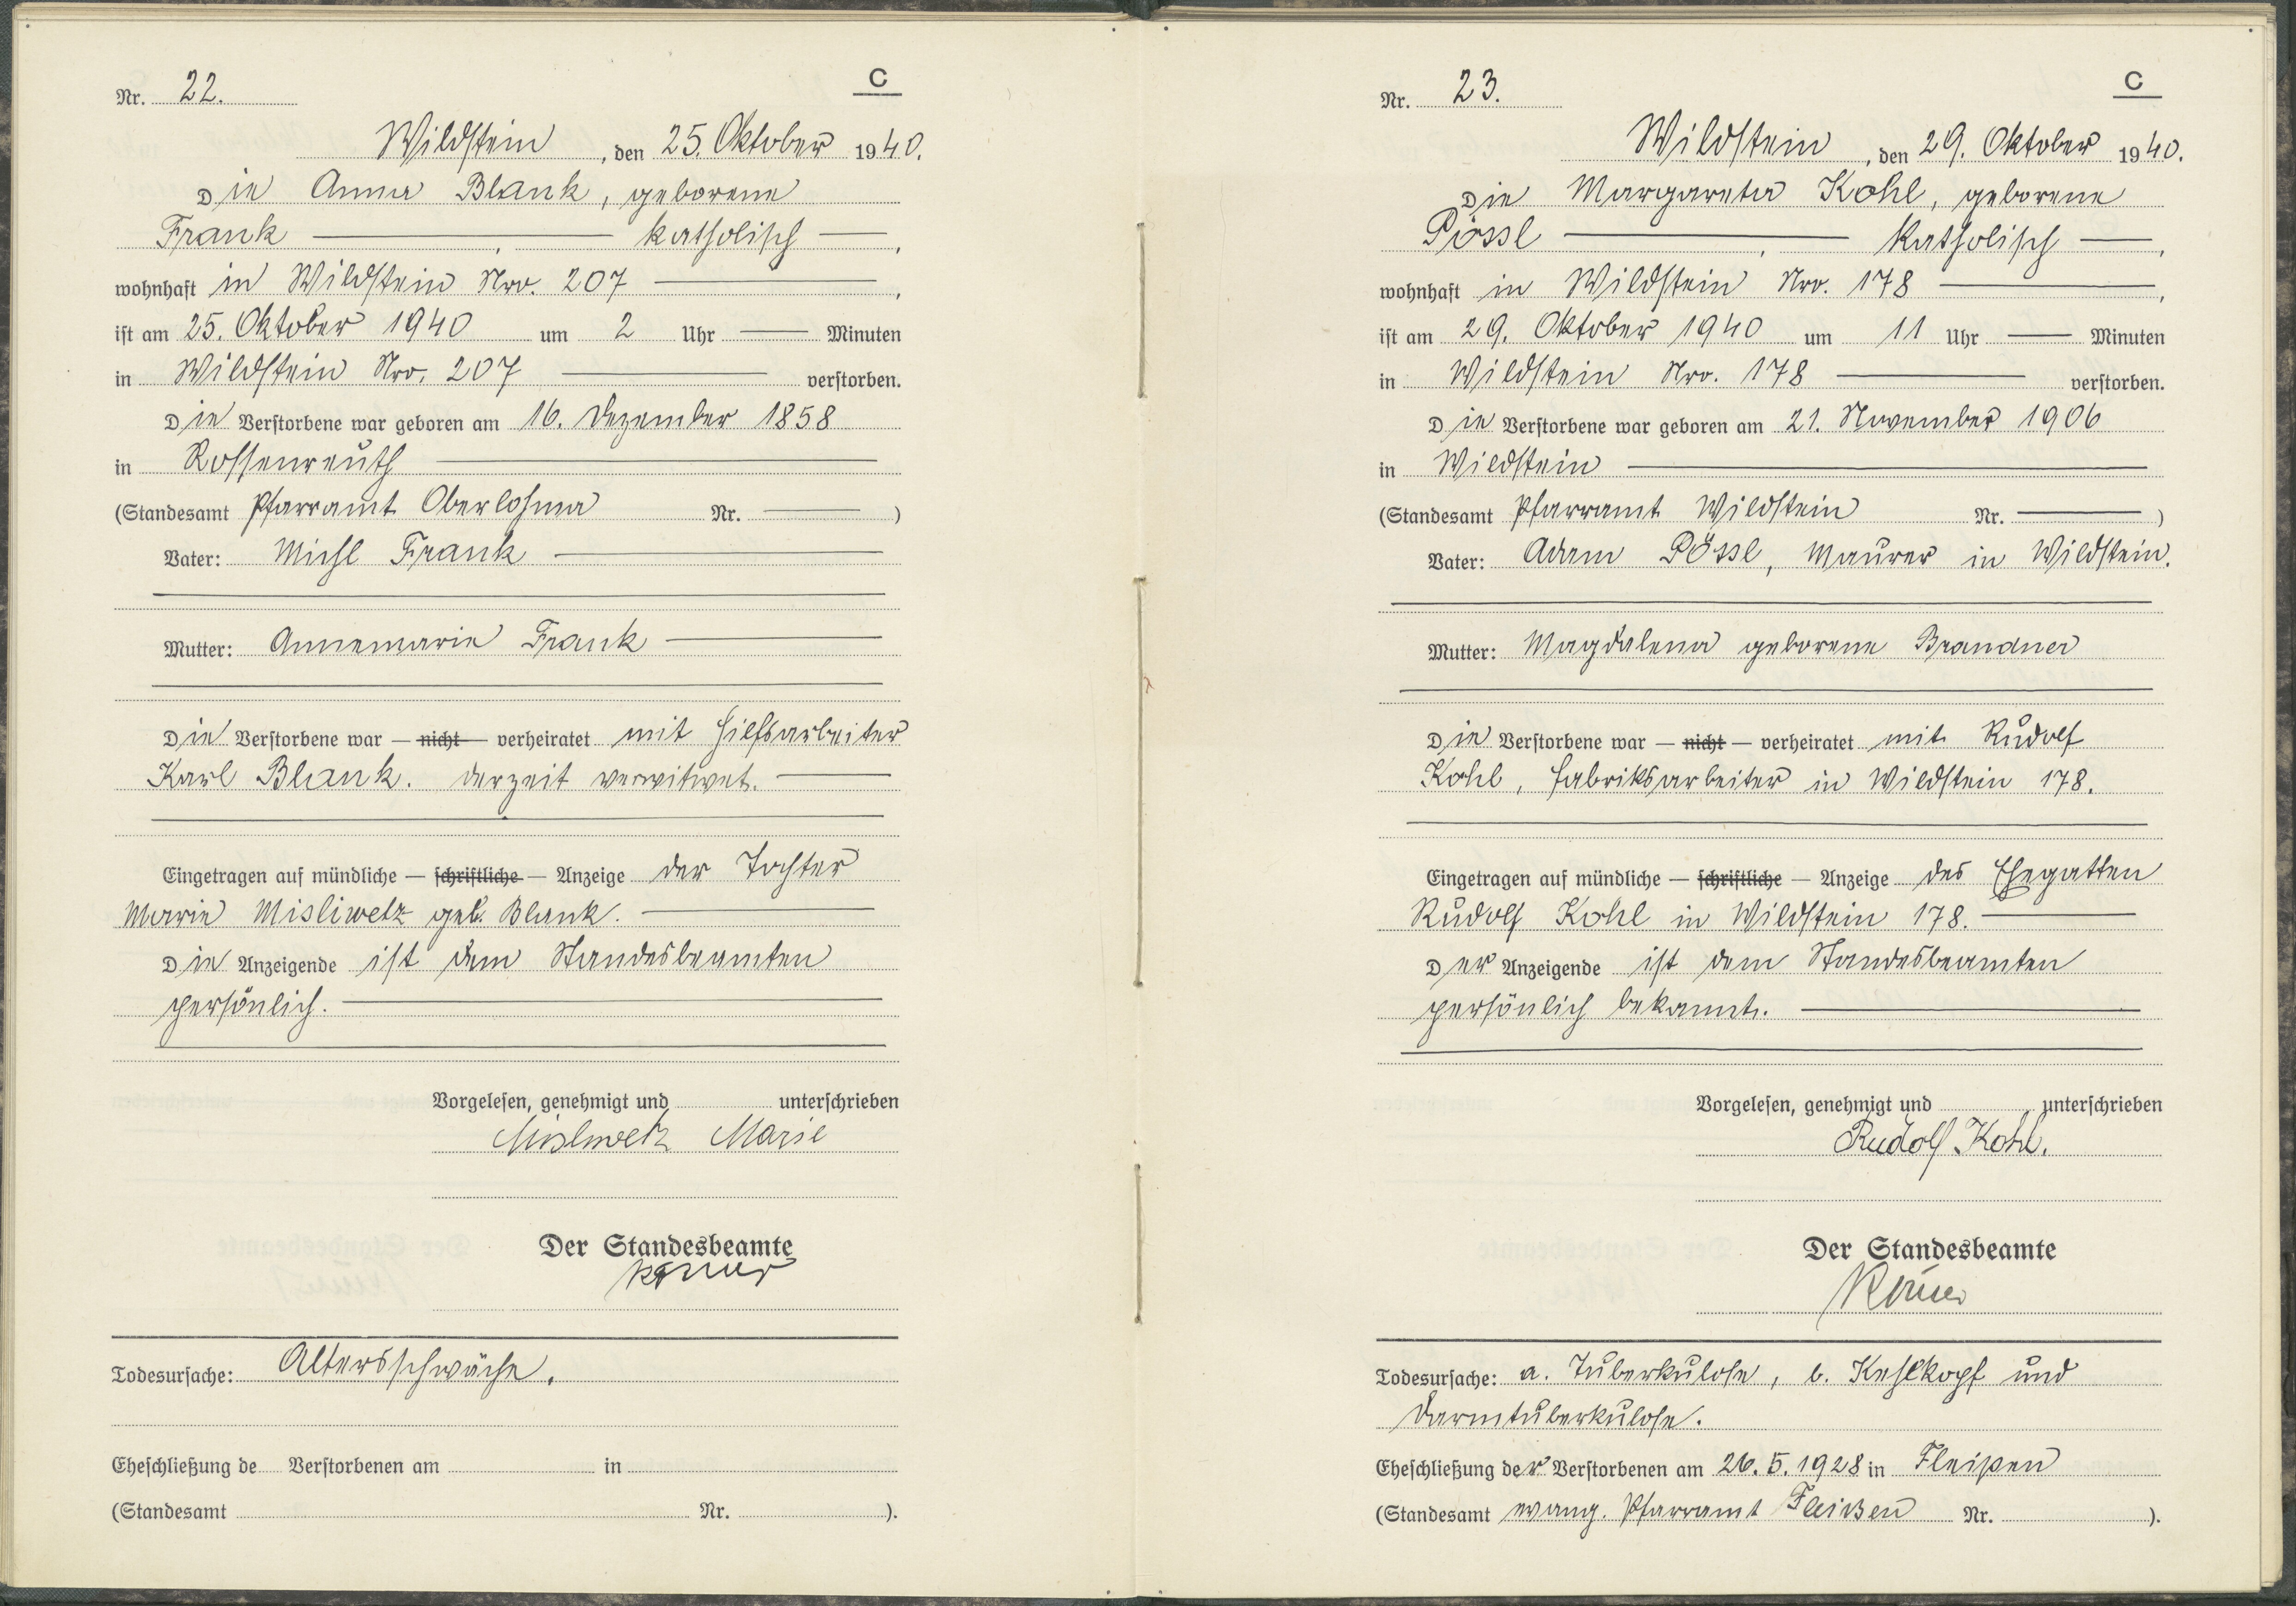 C
Nr. 22.
Wildstein, den 25. Oktober 1940.
Die Anna Blank, geborene
Frank, katholisch,
wohnhaft in Wildstein Nro. 207,
ist am 25. Oktober 1940 um 2 Uhr — Minuten
in Wildstein Nro. 207 verstorben.
Die Verstorbene war geboren am 16. Dezember 1858
in Rossenreuth
(Standesamt Pfarramt Oberlohma Nr. — )
Vater: Michl Frank
Mutter: Annemarie Frank
Die Verstorbene war — nicht — verheiratet mit Hilfsarbeiter
Karl Blank. derzeit verwitwet.
Eingetragen auf mündliche — schriftliche — Anzeige der Tochter
Marie Misliwetz geb. Blank.
Die Anzeigende ist dem Standesbeamten
persönlich.
Vorgelesen, genehmigt und unterschrieben
Misliwetz Marie
Der Standesbeamte
Todesursache: Altersschwäche.
Eheschließung de Verstorbenen am in
(Standesamt Nr. ).
C
Nr. 23.
Wildstein, den 29. Oktober 1940.
Die Margareta Kohl, geborene
Pössl, katholisch,
wohnhaft in Wildstein Nro. 178,
ist am 29. Oktober 1940 um 11 Uhr — Minuten
in Wildstein Nro. 178 verstorben.
Die Verstorbene war geboren am 21. November 1906
in Wildstein
(Standesamt Pfarramt Wildstein Nr. — )
Vater: Adam Pössl, Maurer in Wildstein.
Mutter: Magdalena geborene Brandner
Die Verstorbene war — nicht — verheiratet mit Rudolf
Kohl, Fabriksarbeiter in Wildstein 178.
Eingetragen auf mündliche — schriftliche — Anzeige des Ehegatten
Rudolf Kohl in Wildstein 178.
Der Anzeigende ist dem Standesbeamten
persönlich bekannt.
Vorgelesen, genehmigt und unterschrieben
Rudolf Kohl.
Der Standesbeamte
Todesursache: a. Tuberkulose, b. Kehlkopf und
Darmtuberkulose.
Eheschließung der Verstorbenen am 26.5.1928 in Fleißen
(Standesamt evang. Pfarramt Fleißen Nr. ).